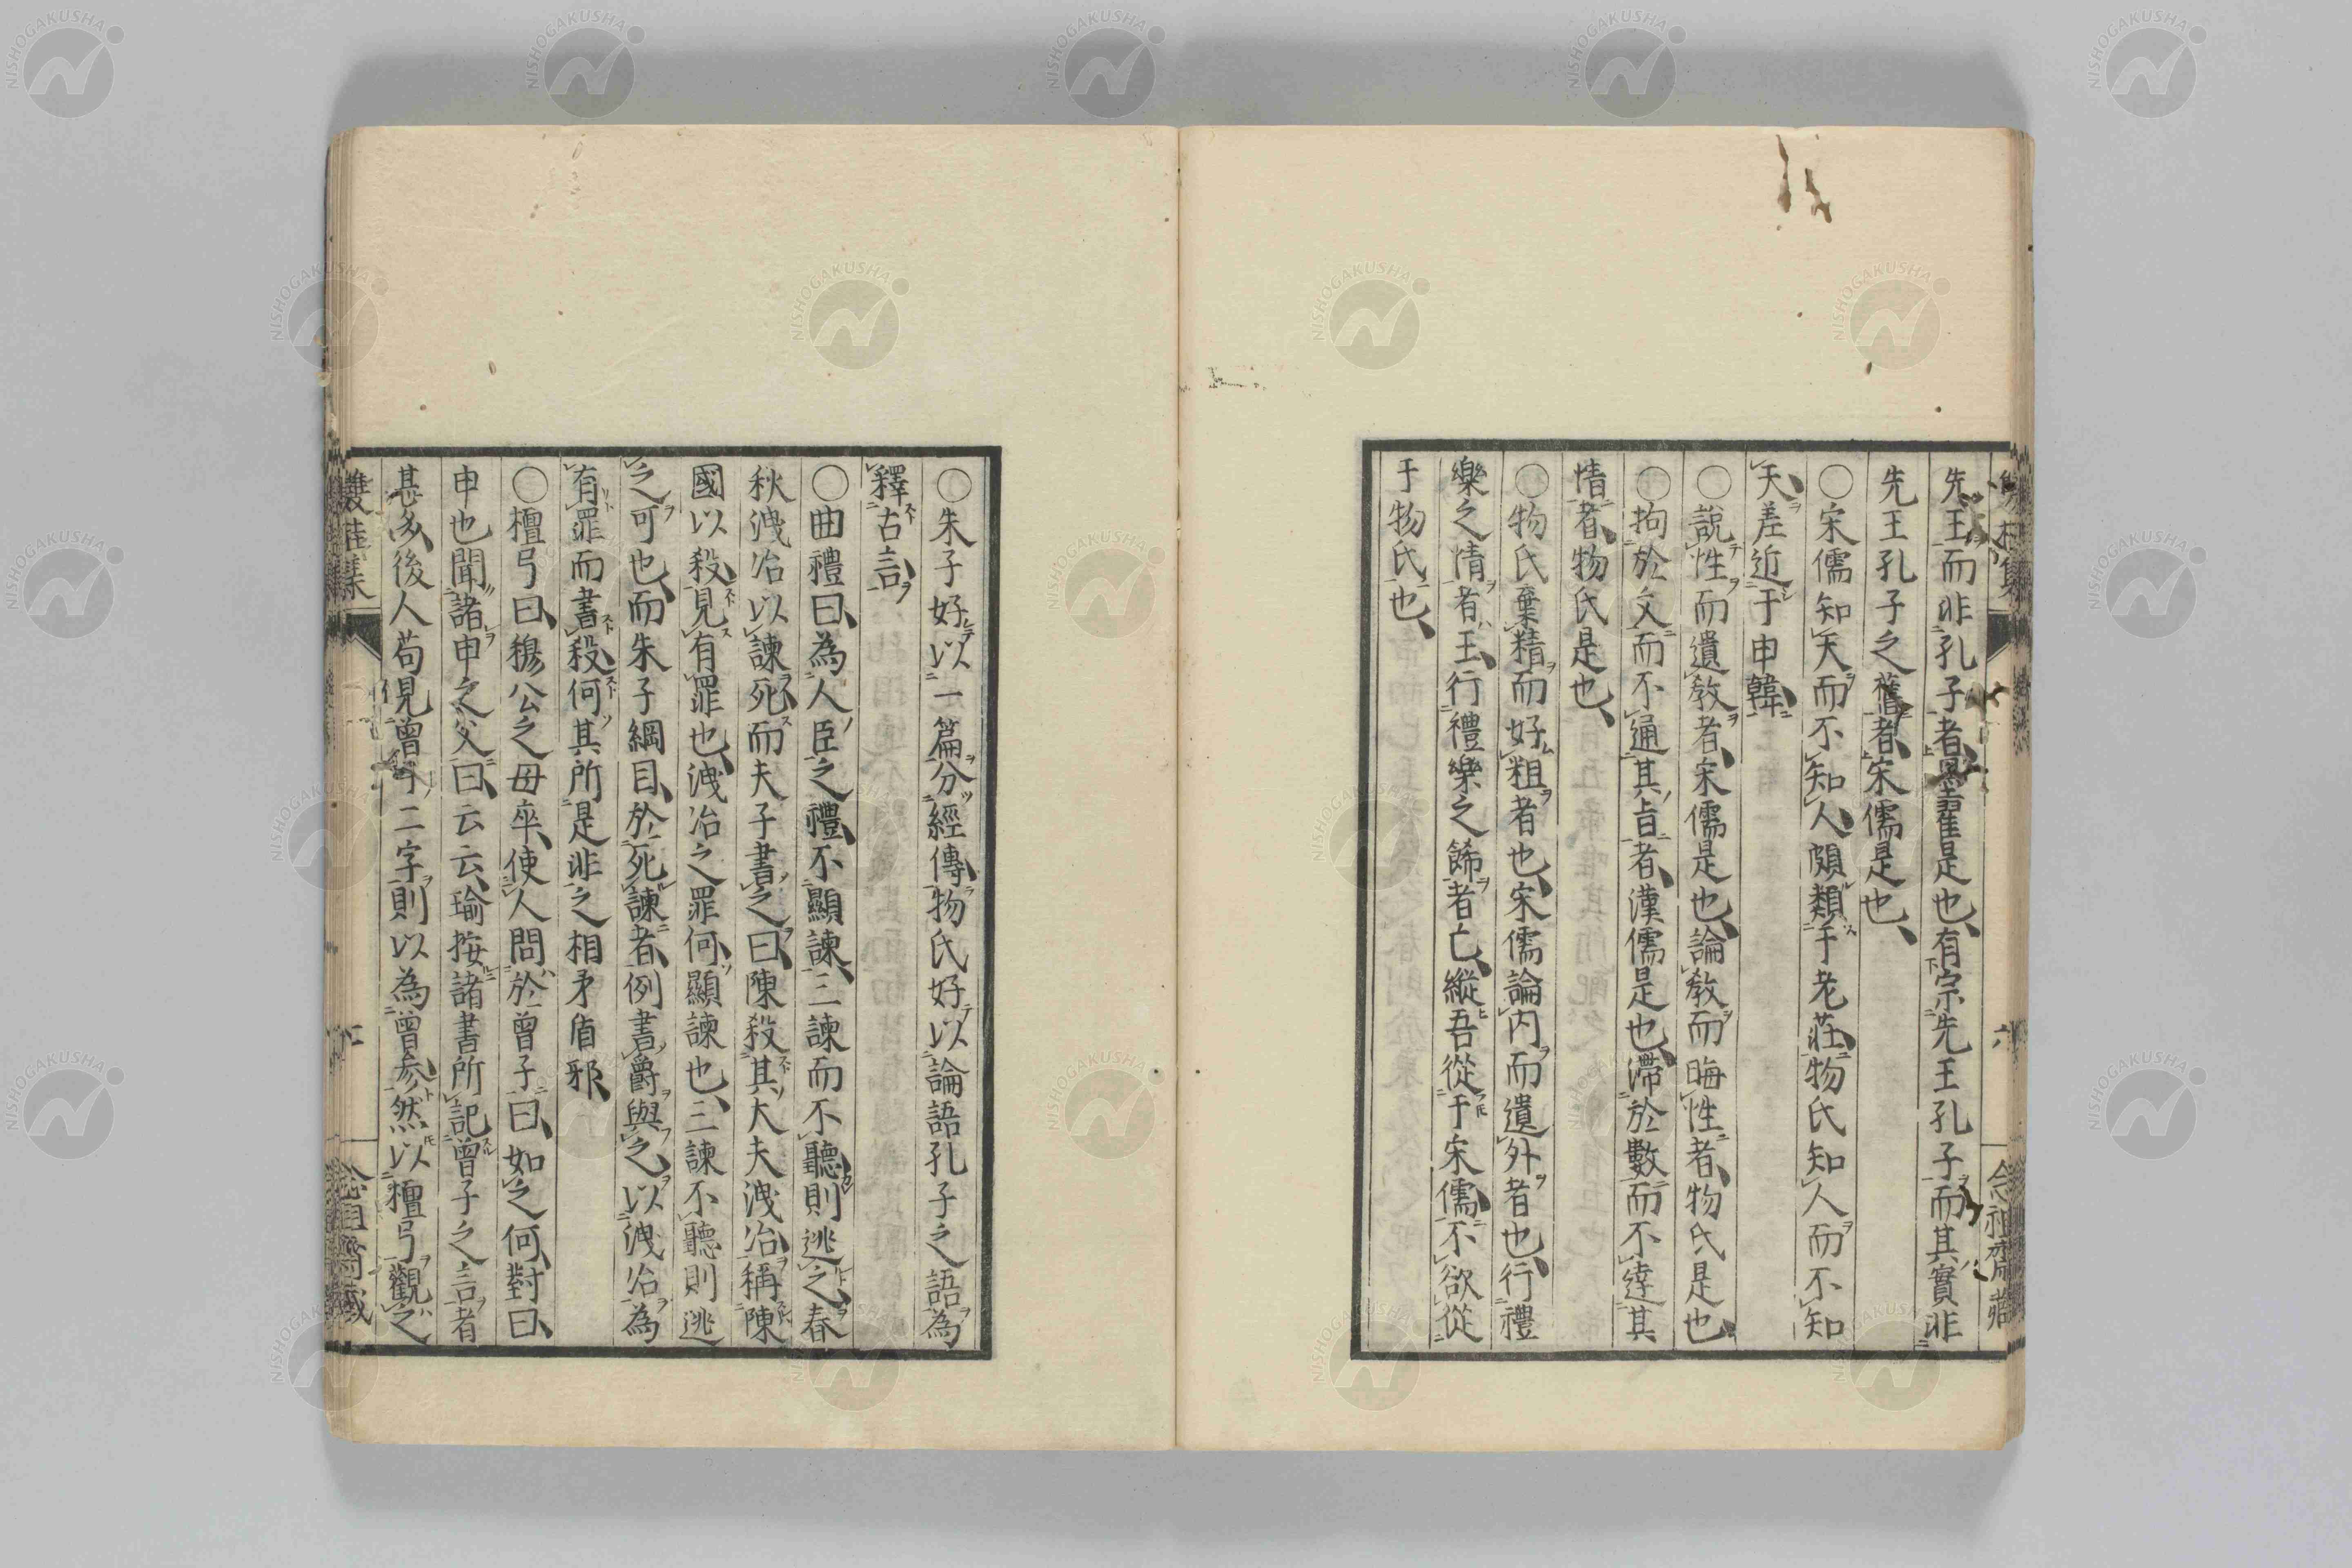 先王而非孔子者墨翟是也有宗先王孔子而其實非
先王孔子之舊者宋儒是也
○宋儒知天而不知人頗類于老莊物氏知人而不知
天差近于申韓
○說性而遺教者宋儒是也論教而晦性者物氏是也
○拘於文而不通其旨者漢儒是也滯於數而不達其
情者物氏是也
○物氏棄精而好粗者也宋儒論内而遺外者也行禮
樂之情者王行禮樂之飾者亡縱吾從于宋儒不欲從
于物氏也
○朱子好以一篇分經傳物氏好以論語孔子之語為
釋古言
○曲禮曰為人臣之禮不顯諫三諫而不聽則逃之春
秋洩冶以諫死而夫子書之曰陳殺其大夫洩冶稱陳
國以殺見有罪也洩冶之罪何顯諫也三諫不聽則逃
之可也而朱子綱目於死諫者例書爵與之以洩冶為
有罪而書殺何其所是非之相矛盾邪
○檀弓曰穆公之母卒使人問於曾子曰如之何對曰
申也聞諸申之父曰云云瑜按諸書所記曾子之言者
甚多後人苟見曾子二字則以為曾参然以檀弓觀之
雙桂集
念祖齋藏
NISHOGAKUSHA